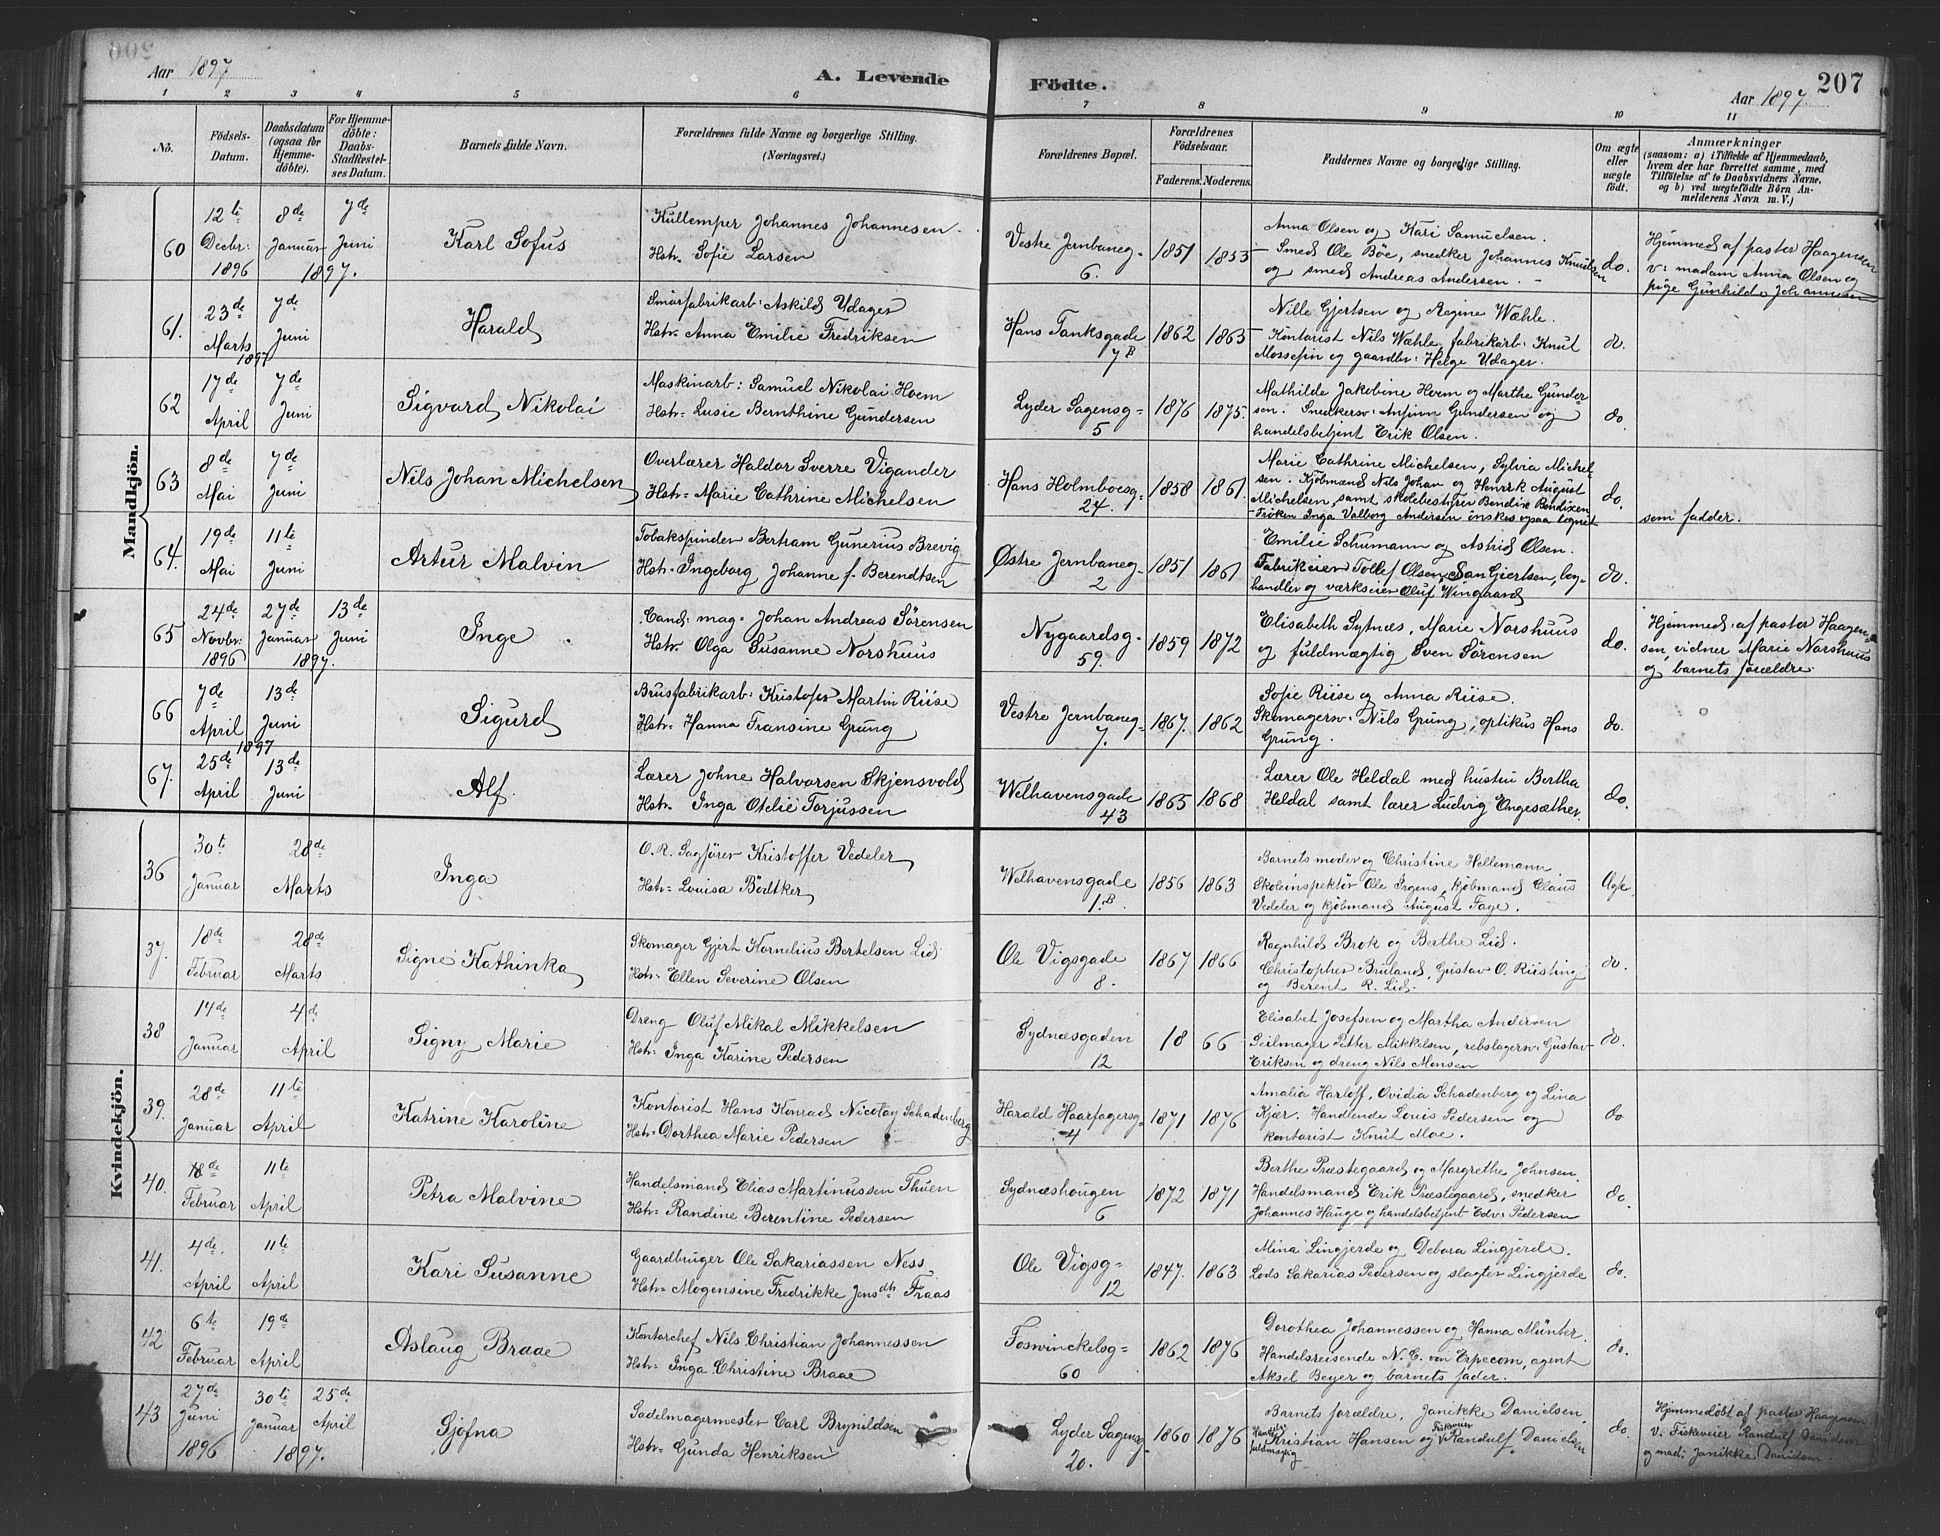 Aar 1897
A. Levende
Födte.
207
Aar 1897.
1 2 3 4 5 6 7 8 9 10 11
No.
Födsels-Datum.
Daabsdatum (ogsaa for Hjemmedöbte).
For Hjemmedöbte: Daabs-Stadfæstelses Datum.
Barnets fulde Navn.
Forældrenes fulde Navne og borgerlige Stilling.
(Næringsvei.)
Forældrenes Bopæl.
Forældrenes Födselsaar.
Faderens. Moderens.
Faddernes Navne og borgerlige Stilling.
Om ægte eller uægte født.
Anmærkninger
(saasom: a) i Tilfælde af Hjemmedaab, hvem der har forrettet samme, med Tilföielse af to Daabsvidners Navne. og b) ved uægtefödte Börn Anmelderens Navn m. V.)
Mandkjön.
60 12te Decbr: 1896 8de Januar 7de Juni 1897.
Karl Sofus
Kullemper Johannes Johannesen
Hstr. Sofie Larsen
Vestre Jernbaneg- 6.
1851 1853
Anna Olsen og Kari Samuelsen.
Smed Ole Böe, snedker Johannes Knudsen
og smed Andreas Andersen.
do.
Hjemmed. af pastor Haagensen
v: madam Anna Olsen og
pige Gunhilde Johannesen
61. 23de Marts 1897 7de Juni
Harald
Smörfabrikarb: Askild Udager
Hstr. Anna Emilie Fredriksen
Hans Tanksgade 7B
1862 1865
Nille Gjertsen og Regine Wæhle.
Kontorist Nils Wæhle, fabrikarb: Knut
Mossefin og gaardbr: Helge Udager.
do.
62 17de April 7de Juni
Sigvard Nikolai
Maskinarb: Samuel Nikolai Hvem
Hstr. Lusie Bernthine Gundersen
Lyder Sagensg- 5
1876 1875.
Mathilde Jakobine Hvem og Marthe Gunder-
sen. Snedkersv: Anfinn Gundersen og
handelsbetjent Erik Olsen.
do.
63 8de Mai 7de Juni
Nils Johan Michelsen
Overlærer Haldor Sverre Vigander
Hstr. Marie Cathrine Michelsen
Hans Holmboesg- 24.
1858 1861.
Marie Cathrine Michelsen, Sylvia Michel-
sen. Kjöbmænd Nils Johan og Henrik August
Michelsen samt skolebestyrer Bendix Bendixen
Fröken Inga Valborg Andersen önskes ogsaa tegnet
do.
som fadder.
64. 19de Mai 11te Juni
Artur Malvin
Tobakspinder Bertram Gunerius Brevig
Hstr. Ingeborg Johanne f. Berendtsen
Østre Jernbaneg- 2
1851 1861
Emilie Schumann og Astrid Olsen.
Fabrikeier Tollef Olsen, San Giertsen, bog-
handler og værkseier Oluf Wingaard
do.
65 24de Novbr. 1896 27de Januar 13de Juni 1897.
Inge
Cand. mag. Johan Andreas Sörensen
Hstr. Olga Susanne Norshuus
Nygaardsg- 59.
1859 1872
Elisabeth Sytnæs, Marie Norshuus
og fuldmægtig Sven Sörensen
do.
Hjemmed: af pastor Haagen-
sen, vidner Marie Norshuus
og barnets forældre
66 7de April 1897 13de Juni
Sigurd
Brusfabrikarb: Kristofer Martin Riise
Hstr. Hanna Fransine Grung
Vestre Jernbaneg- 7.
1867. 1862
Sofie Riise og Anna Riise.
Skomagersv: Nils Grung, optikus Hans
Grung.
do.
67. 25de April 13de Juni
Alf.
Lærer Johne Halvorsen Skjensvold
Hstr. Inga Otelie Torjussen
Welhavensgade 43
1865 1868
Lærer Ole Heldal med hustru Bertha
Heldal samt lærer Ludvig Engesæther.
do.
Kvindekjön.
36 30te Januar 28de Marts
Inga
O. R. Sagförer Kristoffer Vedeler
Hstr. Louisa Bödtker
Welhavensgade 1.B.
1856 1863
Barnets moder og Christine Hellemann
Skoleinspektör Ole Irgens, kjöbmand Claus
Vedeler og kjöbmand August Faye.
Ægte
37. 18de Februar 28de Marts
Signe Kathinka
Skomager Gjert Kornelius Bertelsen Lid
Hstr. Ellen Severine Olsen
Ole Vigsgade 8.
1867 1866
Ragnhild Brok og Berthe Lid.
Christopher Bruland, Gustav O. Riisting
og Berent R. Lid.
do.
38 14de Januar 4de April
Signy Marie
Dreng Oluf Mikal Mikkelsen
Hstr. Inga Karine Pedersen
Sydnæsgaden 12
18 66
Elisabet Josefsen og Martha Andersen
Seilmager Petter Mikkelsen, rebslagersv: Gustav
Eriksen og dreng Nils Monsen
do.
39. 28de Januar 11te April
Katrine Karoline
Kontorist Hans Konrad Nicolay Schadenberg
Hstr. Dorthea Marie Pedersen
Harald Haarfagersg- 4
1871 1876
Amalia Harloff, Ovidia Schadenberg og Lina
Kjær. Handlende Louis Pedersen og
kontorist Knut Moe.
do
40. 18de Februar 11te April
Petra Malvine
Handelsmand Elias Martinussen Thuen
Hstr. Randine Berentine Pedersen
Sydnæshougen 6
1872 1871
Berthe Præstegaard og Margrethe Johnsen.
Handelsmand Erik Præstegaard, snedker
Johannes Hauge og handelsbetjent Edv: Pedersen
do.
41. 4de April 11te April
Kari Susanne
Gaardbruger Ole Sakariassen Ness
Hstr. Mogensine Fredrikke Jensdtr Fraas
Ole Vigsg- 12
1847. 1863
Mina Lingjerde og Debora Lingjerde.
Lods Sakarias Pedersen og slagter Lingjerde
do.
42 6te Februar 19de April
Aslaug Braae
Kontorchef Nils Christian Johannessen
Hstr. Inga Christine Braae
Fosvinckelsg- 60
1862 1876
Dorothea Johannessen og Hanna Münter.
Handelsreisende N. C. von Erpecom, agent
Aksel Beyer og barnets fader.
do.
43 27de Juni 1896 30te Januar 25de April 1897.
Gjöfna
Sadelmagermester Carl Brynildsen
Hstr. Gunda Henriksen
Lyder Sagensg 20.
1860 1876
Barnets forældre, Janikke Danielsen.
Kristian Hansen og Fiskveier Randulf Danielsen
do.
Hjemmedöbt af pastor Haagensen
V. Fiskveier Randulf Danielsen
og mad: Janikke Danielsen.